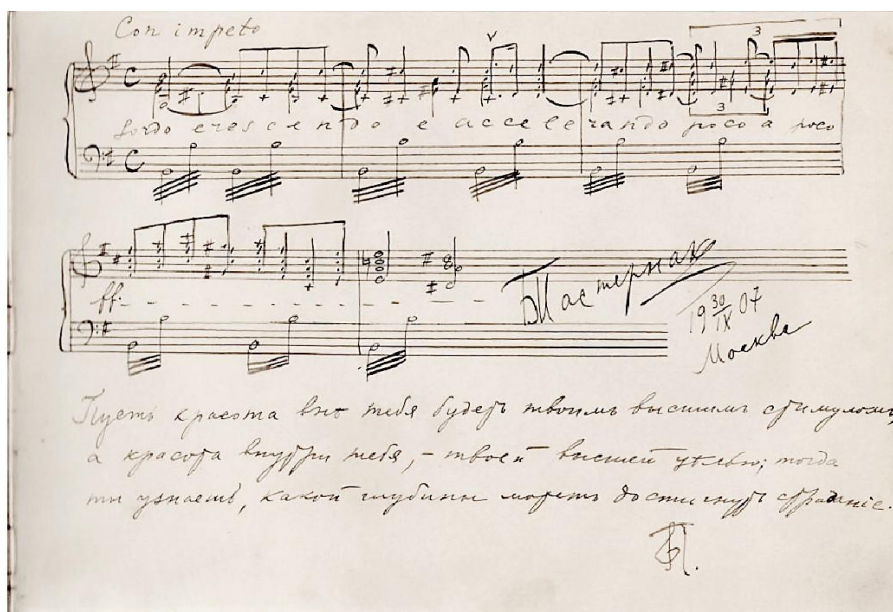 Con impeto
3
C
sordo crescendo e accelerando poco a poco
3
C
ff.
Пастернак
19 30/IX 07
Москва
Пусть красота внѣ тебя будетъ твоимъ высшимъ стимуломъ,
а красота внутри тебя, – твоей высшей цѣлью; тогда
ты узнаешь, какой глубины можетъ достигнуть страданіе.
БП.